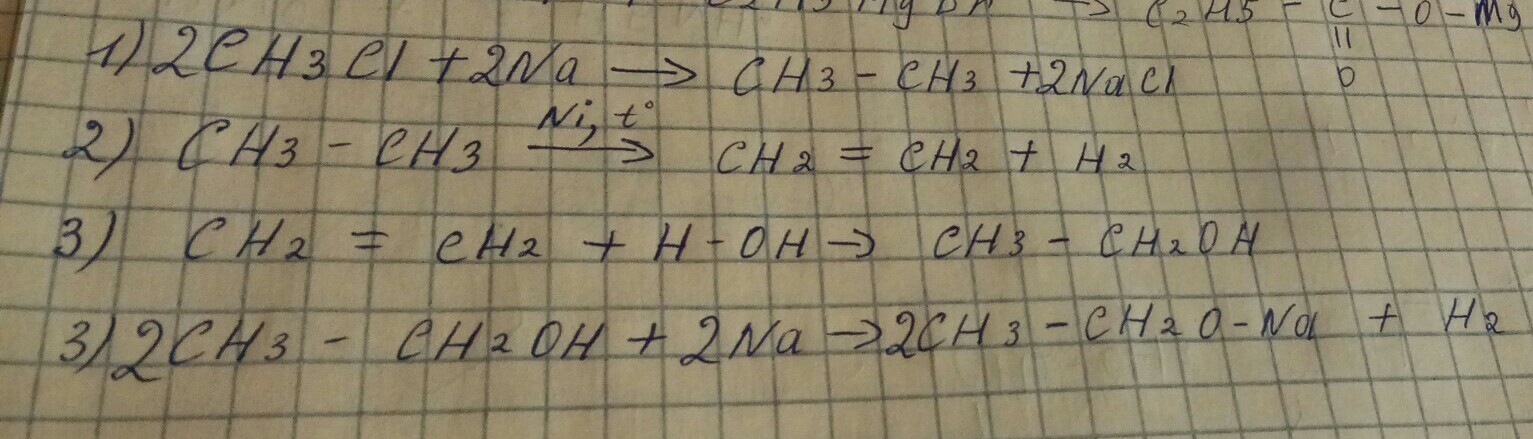 → C2H5 - C - O - Mg
||
O
1) 2CH3Cl + 2Na → CH3 - CH3 + 2NaCl
Ni, t°
2) CH3 - CH3 → CH2 = CH2 + H2
3) CH2 = CH2 + H - OH → CH3 - CH2OH
3) 2CH3 - CH2OH + 2Na → 2CH3 - CH2O - Na + H2